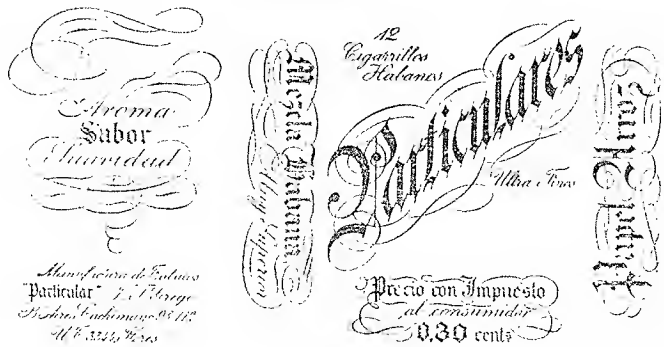 Aroma
Sabor
Suavidad
Manufactura de Tabacos
"Particular"
Mezcla Habana
12
Cigarrillos
Habanos
Particulares
Ultra Finos
Precio con Impuesto
al consumidor
0.30 cents
Papel Arroz